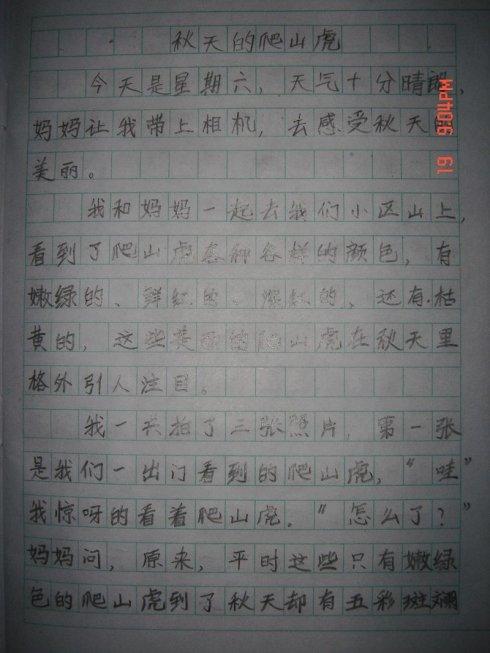 秋天的爬山虎
今天是星期六，天气十分晴朗，
妈妈让我带上相机，去感受秋天的
美丽。
我和妈妈一起去我们小区山上，
看到了爬山虎各种各样的颜色，有
嫩绿的、鲜红的、的、还有枯
黄的，这些美丽的爬山虎在秋天里
格外引人注目。
我一共拍了三张照片，第一张
是我们一出门看到的爬山虎，“哇”
我惊呀的看着爬山虎．“怎么了？”
妈妈问，原来，平时这些只有嫩绿
色的爬山虎到了秋天却有五彩斑斓